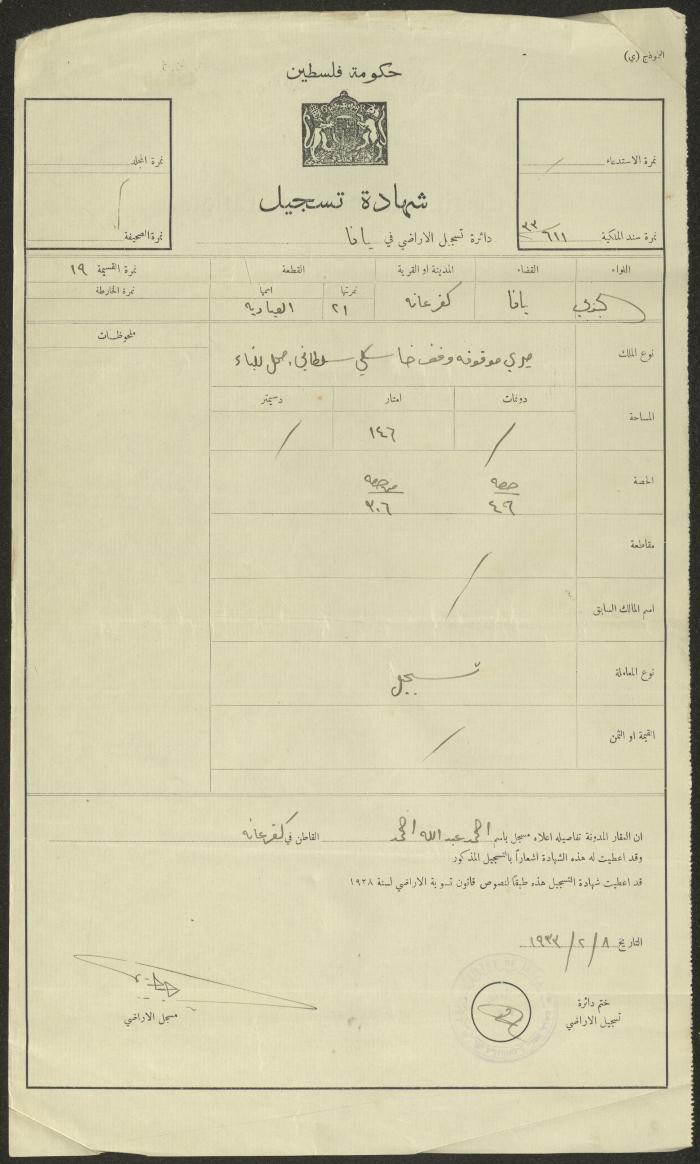 (النموذج (ي
حكومة فلسطين
نمرة الاستدعاء
نمرة سند الملكية ٦١١/٣٣
نمرة المجلد
نمرة الصحيفة
شهادة تسجيل
دائرة تسجيل الاراضي في يافا
اللواء القضاء المدينة او القرية القطعة نمرة القسيمة ١٩
نمرتها اسمها نمرة الخارطة
يافا كفرعانه ٢١ العباديه
ملحوظات
نوع الملك ميري موقوفه وقف خاسكي سلطاني
المساحة دونمات امتار دسيمتر
١٤٦
الحصة حصه
٤٦ ٣٠٦
مقاطعة
اسم المالك السابق
نوع المعاملة تسجيل
القيمة او الثمن
ان العقار المدونة تفاصيله اعلاه مسجل باسم احمد عبد الله احمد القاطن في كفرعانه
وقد اعطيت له هذه الشهادة اشعاراً بالتسجيل المذكور
قد اعطيت شهادة التسجيل هذه طبقاً لنصوص قانون تسوية الاراضي لسنة ١٩٢٨
التاريخ ٨/٢/١٩٣٣
ختم دائرة
تسجيل الاراضي
مسجل الاراضي